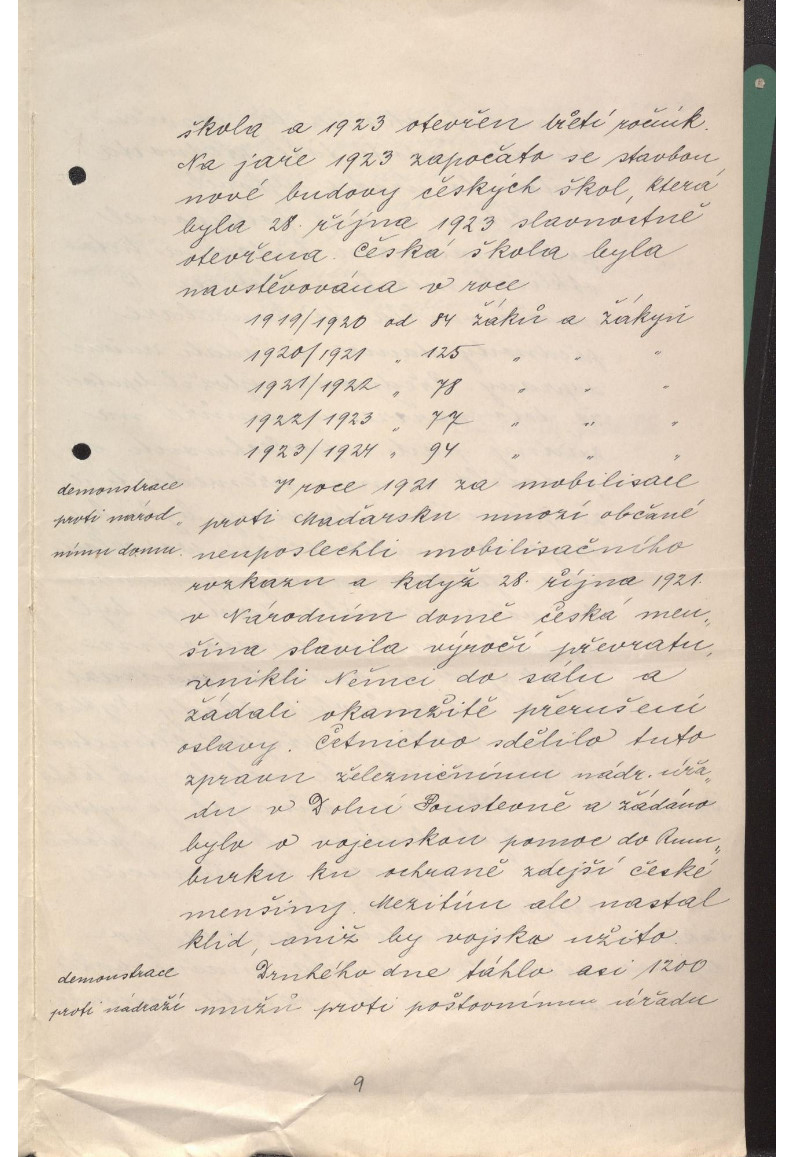 škola a 1923 otevřen třetí ročník.
Na jaře 1923 započato se stavbou
nové budovy českých škol, která
byla 28. října 1923 slavnostně
otevřena. Česká škola byla
navštěvována v roce
1919/1920 od 84 žáků a žákyň
1920/1921 „ 125 „ „ „
1921/1922 „ 78 „ „ „
1922/1923 „ 77 „ „ „
1923/1924 „ 94 „ „ „
demonstrace
proti národ„
nímu domu.
V roce 1921 za mobilisace
proti Maďarsku mnozí občané
neuposlechli mobilisačního
rozkazu a když 28. října 1921.
v Národním domě česká men„
šina slavila výročí převratu,
vnikli Němci do sálu a
žádali okamžitě přerušení
oslavy. Četnictvo sdělilo tuto
zprávu železničnímu nádr. úřa„
du v Dolní Poustevně a žádáno
bylo o vojenskou pomoc do Rum„
burku ku ochraně zdejší české
menšiny. Mezitím ale nastal
klid, aniž by vojsko užito.
demonstrace
proti nádraží
Druhého dne táhlo asi 1200
mužů proti poštovnímu úřadu
9